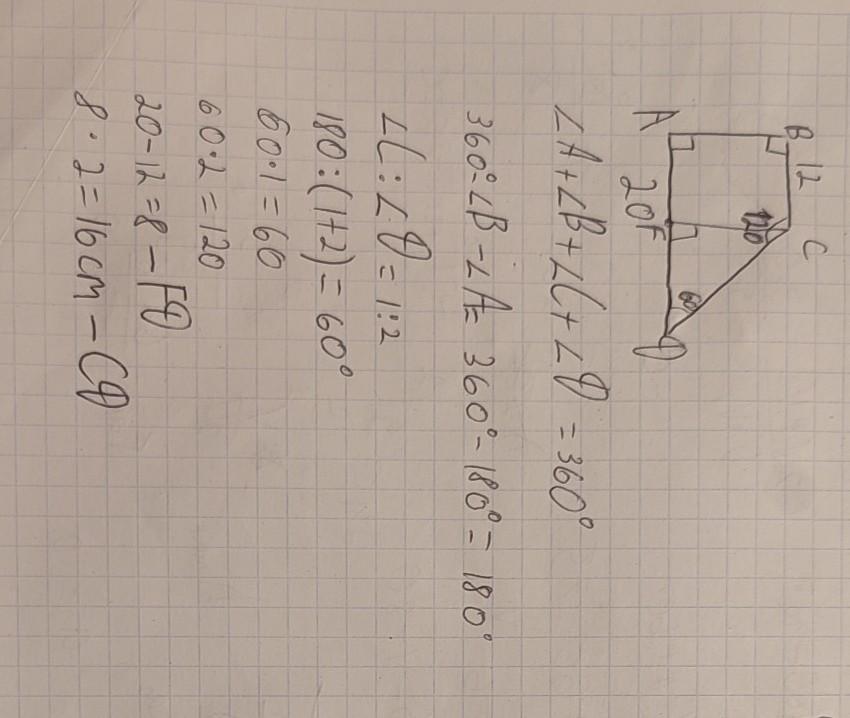 B 12 C
120
60
A 20 F D
∠A+∠B+∠C+∠D = 360°
360°-∠B-∠A= 360°-180°= 180°
∠C:∠D = 1:2
180:(1+2)= 60°
60·1=60
60·2=120
20-12=8 - FD
8·2=16cm - CD